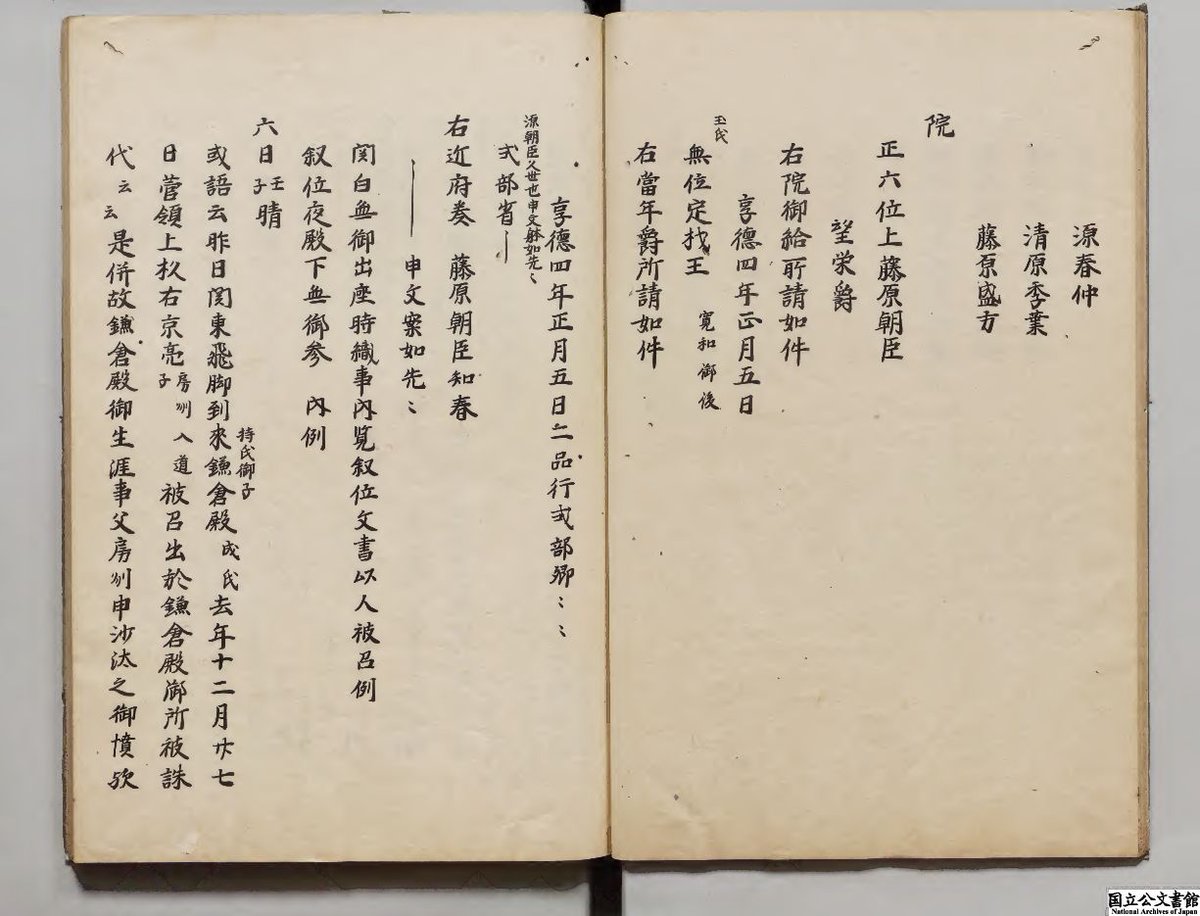 源春仲
清原季葉
藤原盛方
院
正六位上藤原朝臣
望栄爵
右院御給所請如件
享徳四年正月五日
王氏
無位定枝王 寛和御後
右當年爵所請如件
享徳四年正月五日二品行式部卿〻〻
源朝臣父世也申文躰如先〻
式部省
右近府奏 藤原朝臣知春
申文案如先〻
関白無御出座時織事内覧叙位文書以人被召例
叙位夜殿下無御参内例
六日壬子晴
或語云昨日関東飛脚到來鎌倉殿成氏去年十二月廿七
持氏御子
日菅領上杉右京亮房州入道子被召出於鎌倉殿御所被誅
代云云是併故鎌倉殿御生涯事父房州申沙汰之御憤欤
国立公文書館
National Archives of Japan